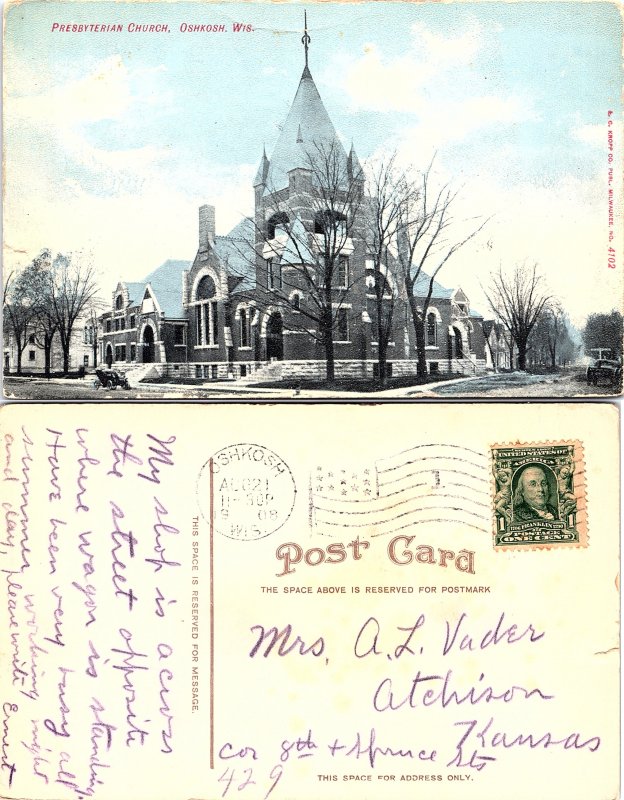 PRESBYTERIAN CHURCH, OSHKOSH, WIS.
E. C. KROPP CO. PUBL. MILWAUKEE. NO. 4102
My shop is across
the street opposite
where wagon is standing.
Have been very busy all
summer working night
and day, please write Ernest
THIS SPACE IS RESERVED FOR MESSAGE.
OSHKOSH
AUG 21
08
WIS.
UNITED STATES OF AMERICA
1706 FRANKLIN 1790
1 1
POSTAGE
ONE CENT
Post Card
THE SPACE ABOVE IS RESERVED FOR POSTMARK
Mrs. A. L. Vader
Atchison
Kansas
cor 8th + Spruce Sts
429
THIS SPACE FOR ADDRESS ONLY.